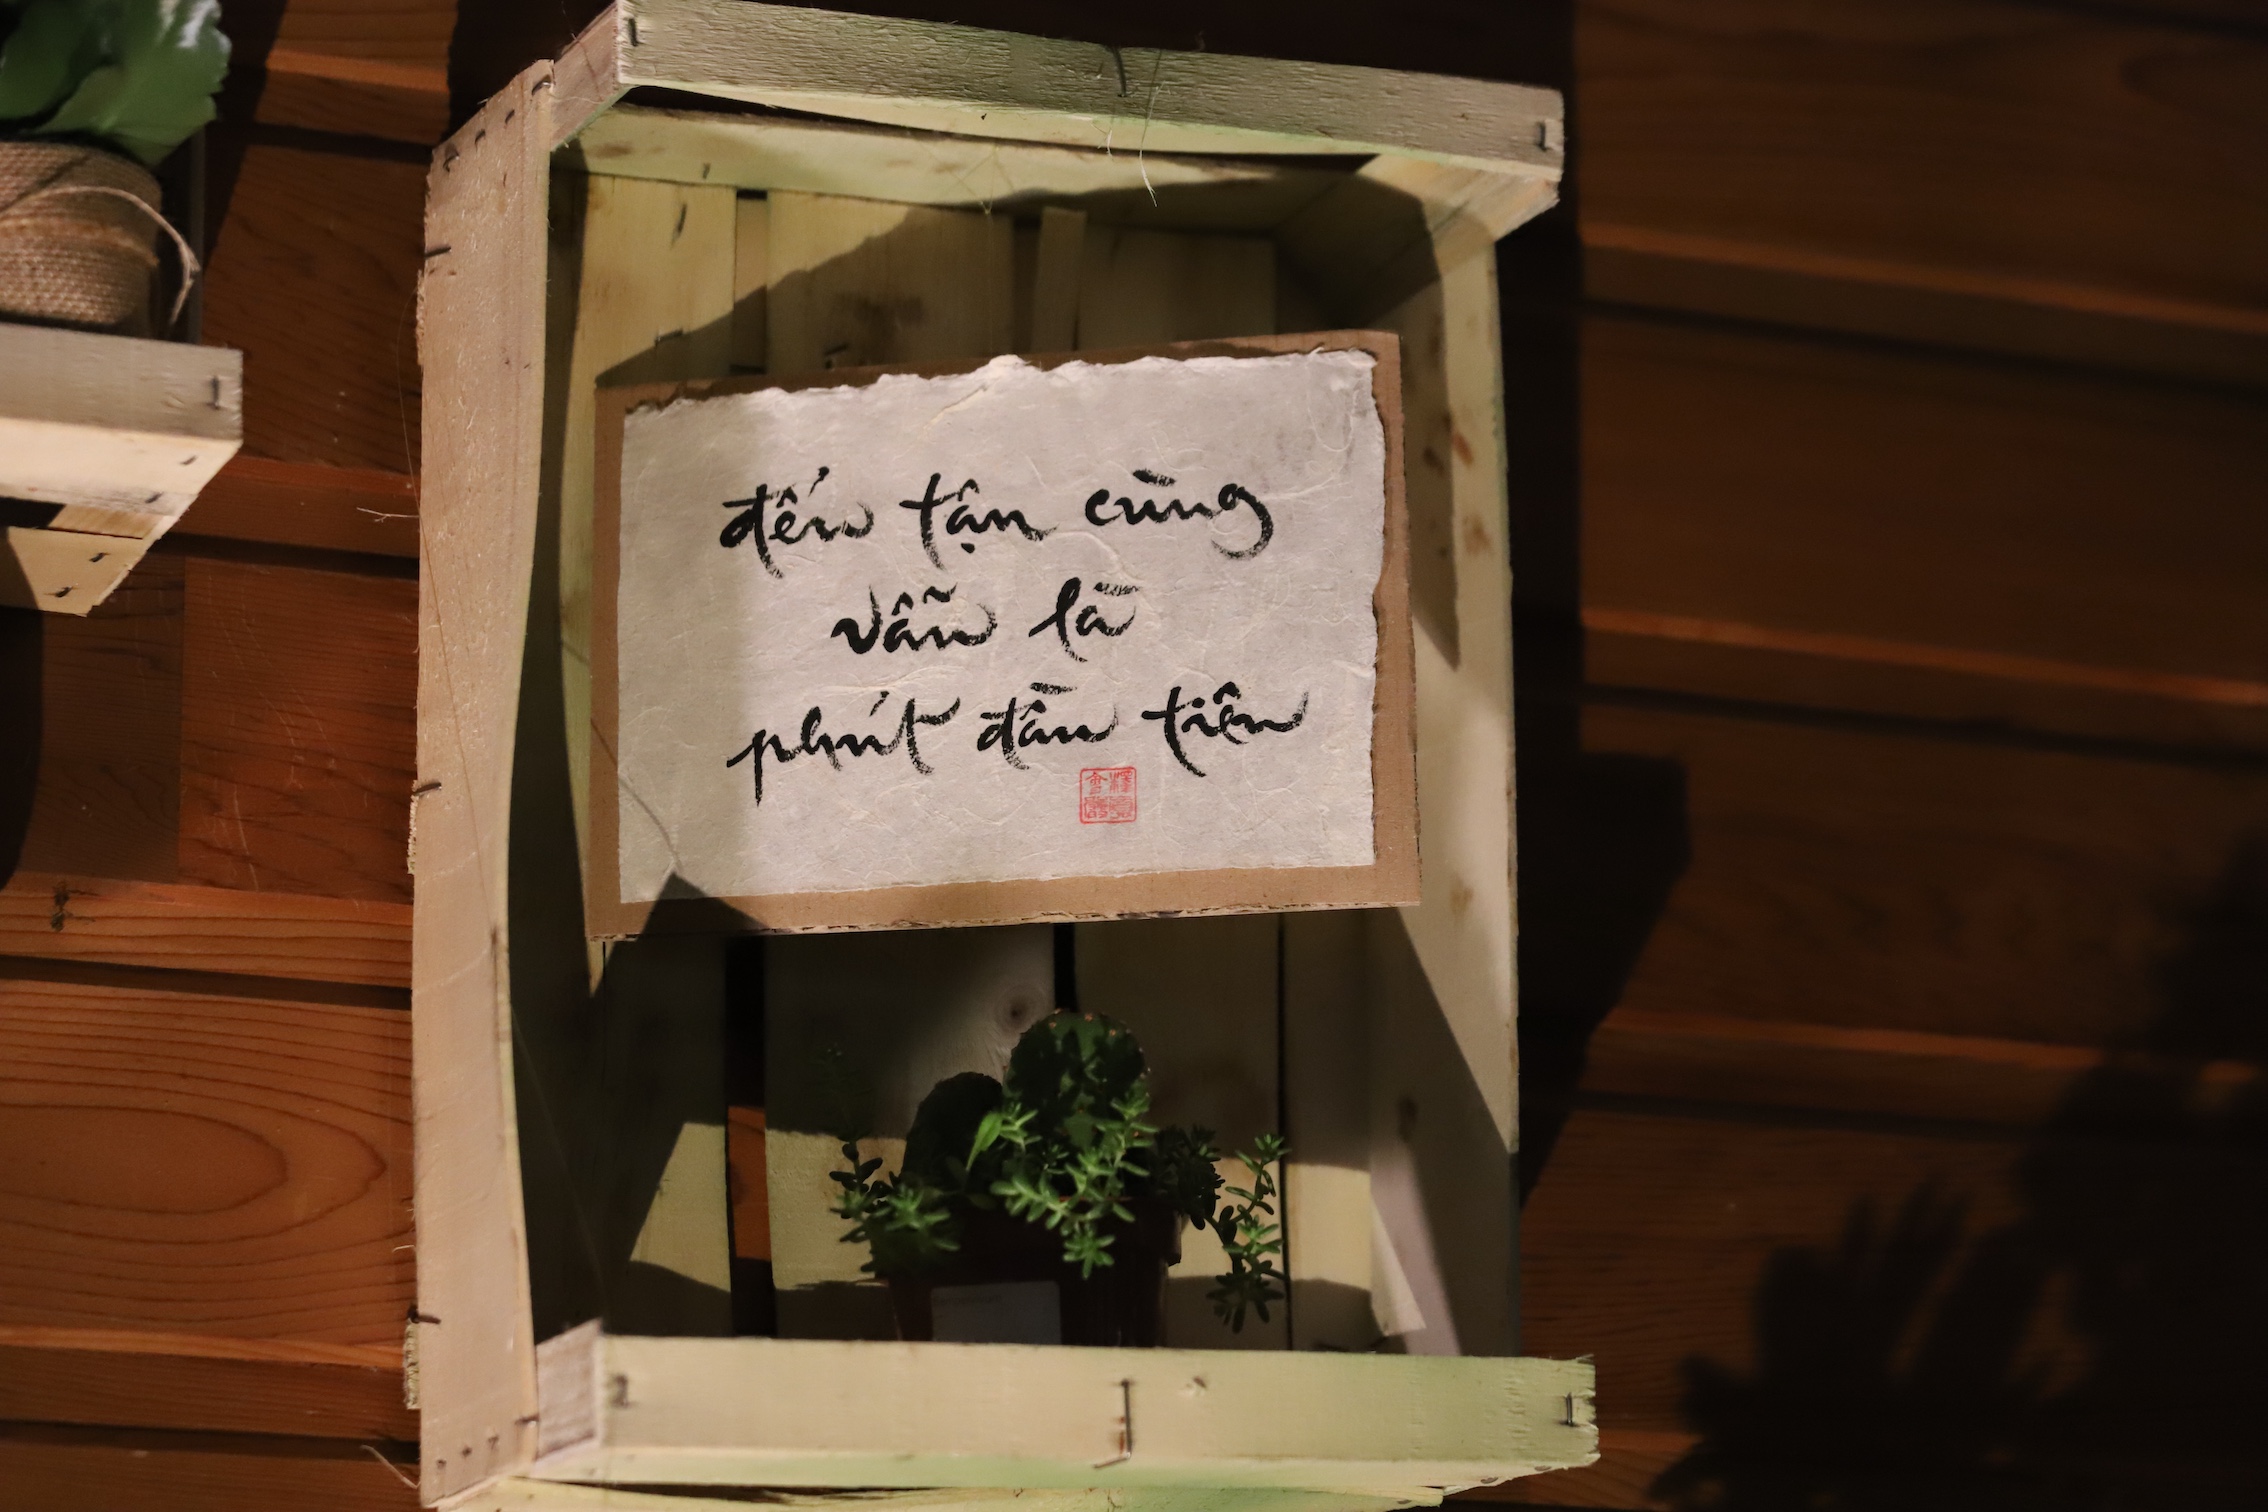 đến tận cùng
vẫn là
phút đầu tiên